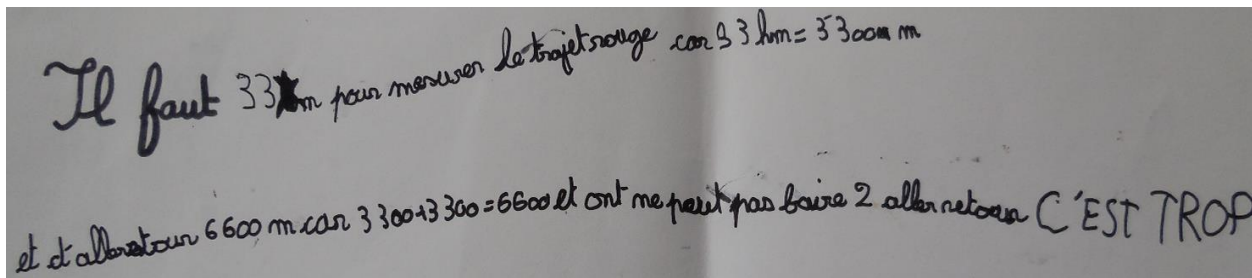 Il faut 33 m pour mesurer le trajet rouge car 33 hm = 3300 m
et d'alleretour 6600 m car 3300+3300=6600 et ont ne peut pas faire 2 aller retour C'EST TROP